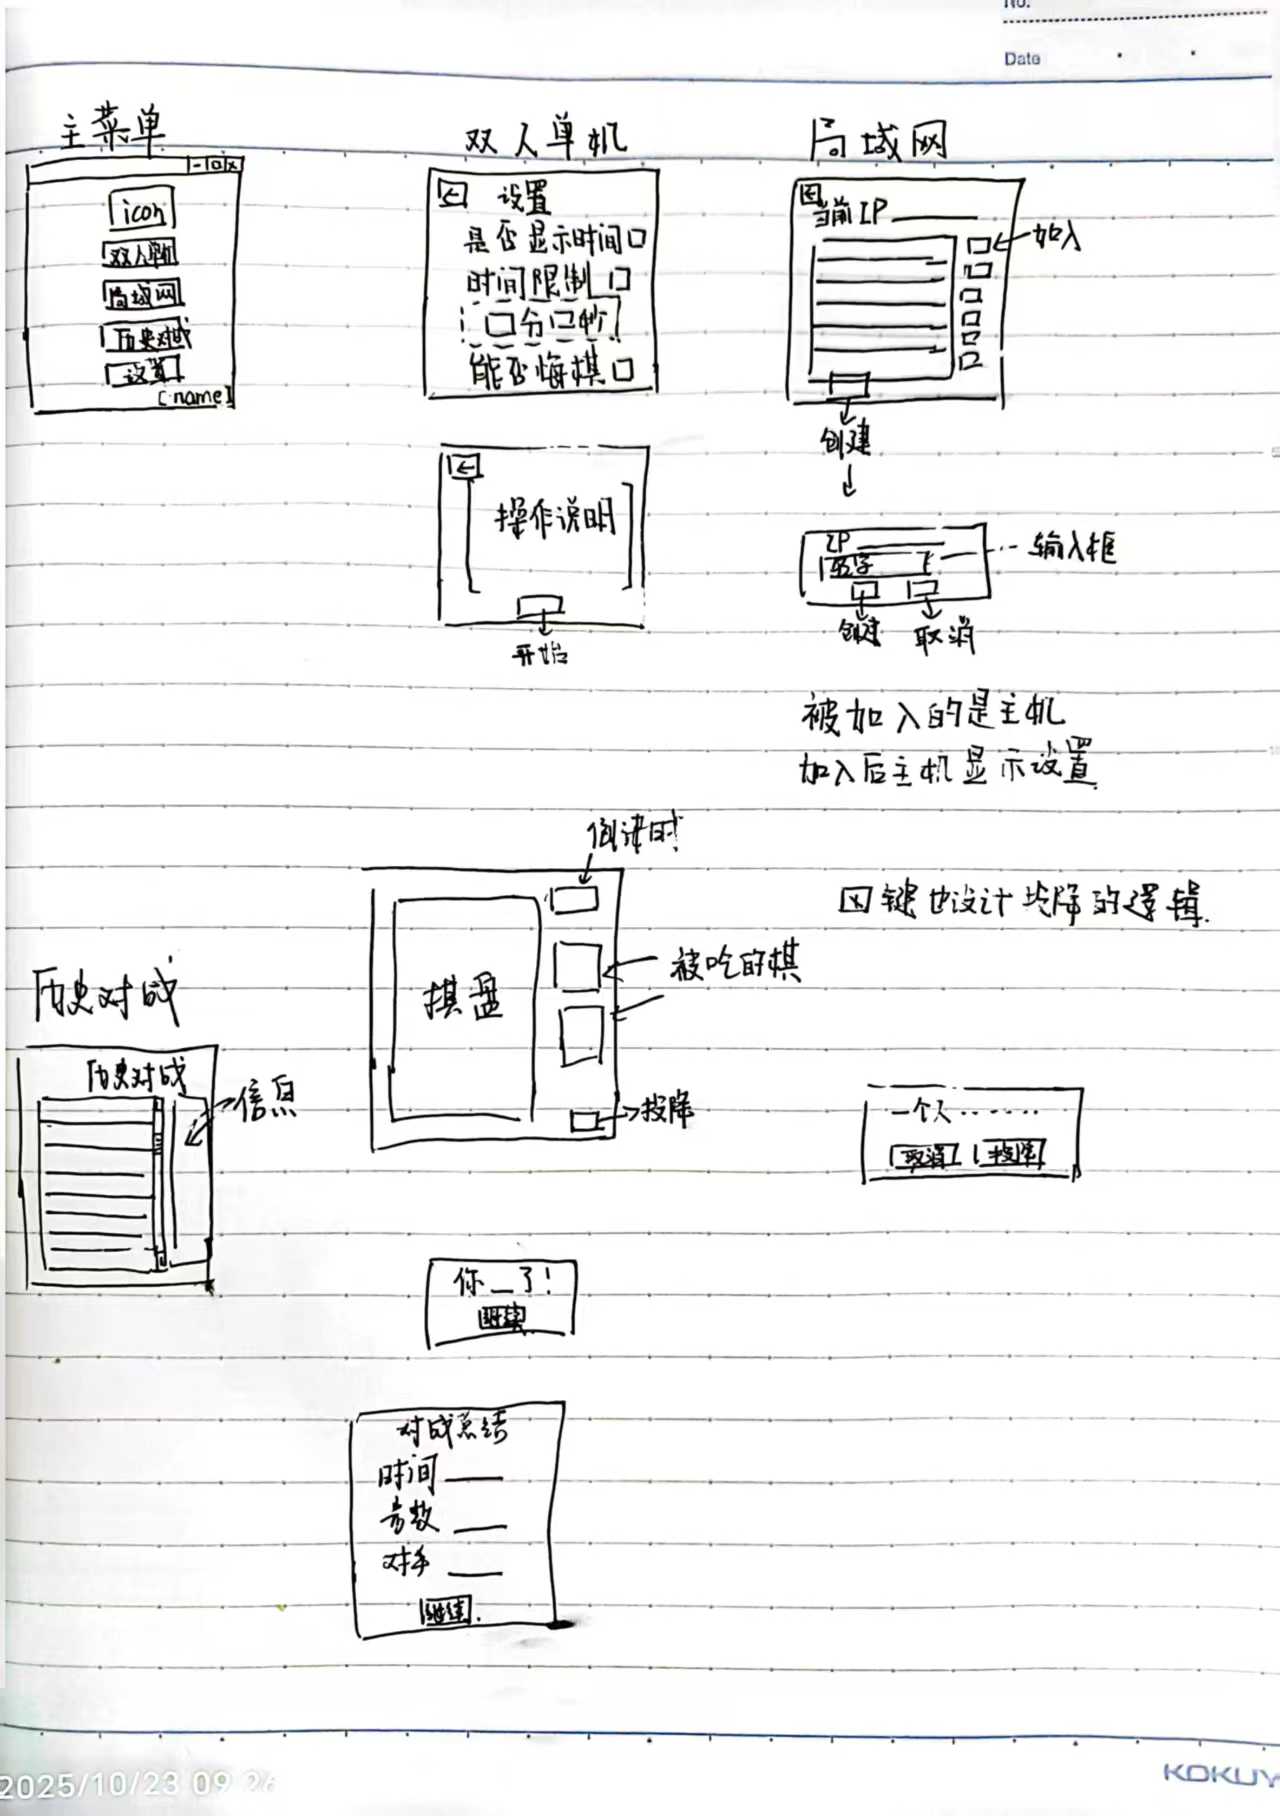 No.
Date
主菜单
icon
双人单机
局域网
历史对战
设置
[name]
双人单机
设置
是否显示时间
时间限制
分 秒
能否悔棋
操作说明
开始
局域网
当前IP
加入
创建
IP
输入框
创建 取消
被加入的是主机
加入后主机显示设置
倒计时
棋盘
被吃的棋
投降
区键也设计投降的逻辑.
一个人......
取消 投降
历史对战
历史对战
信息
你_了!
继续
对战总结
时间
步数
对手
继续
2025/10/23 09:26
KOKUY